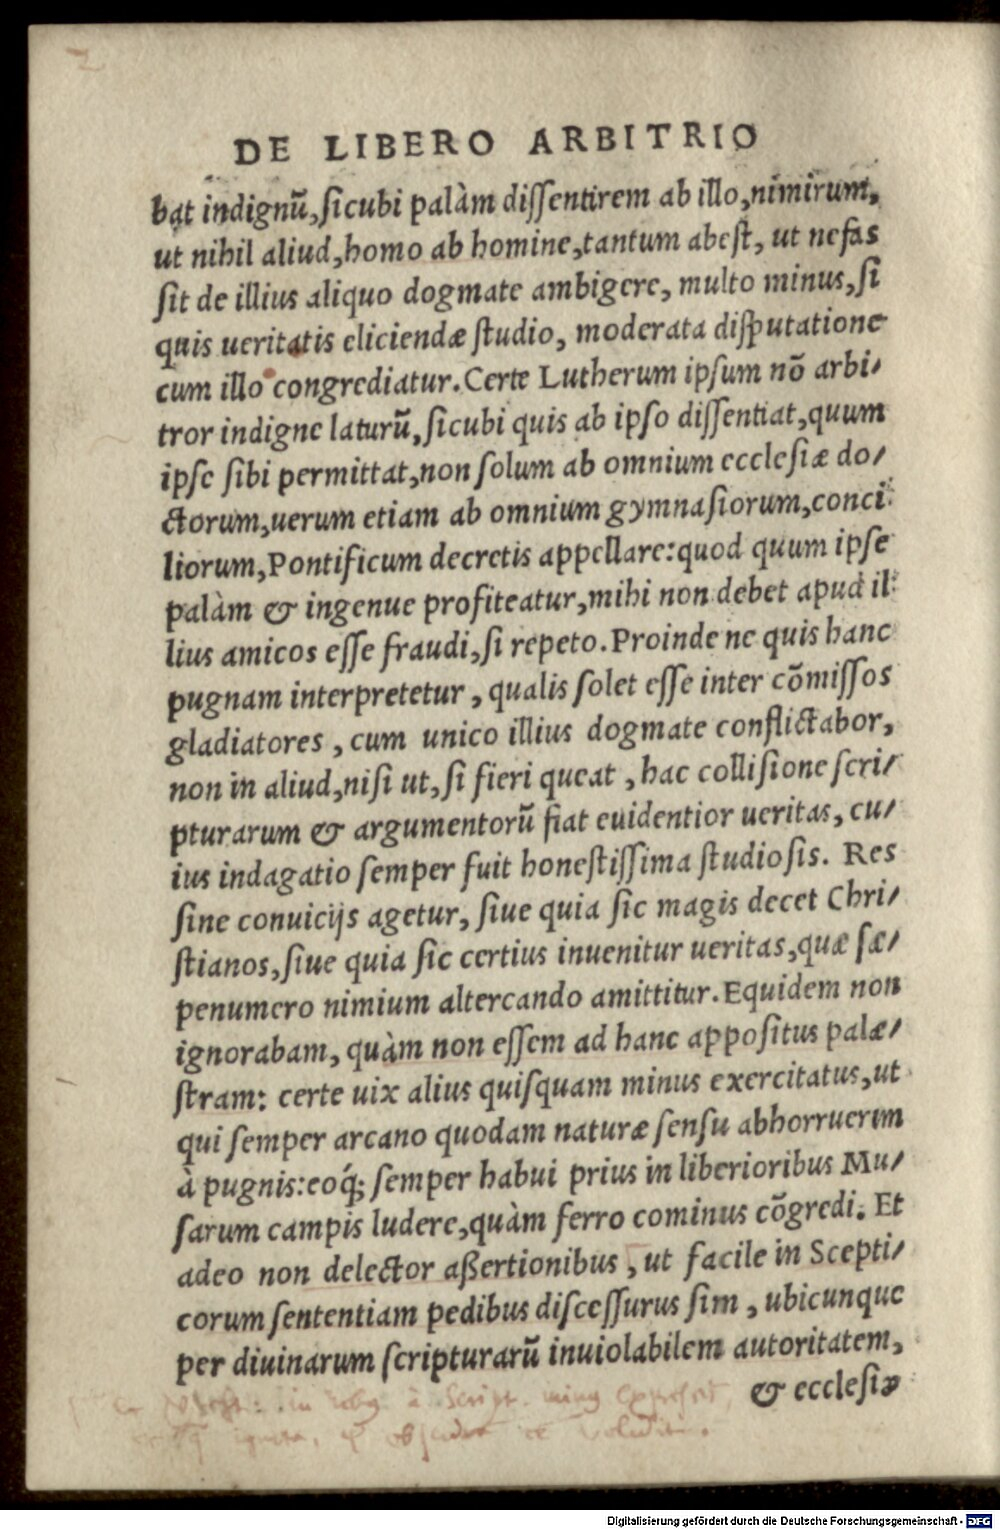 DE LIBERO ARBITRIO
bat indignũ, sicubi palàm dissentirem ab illo, nimirum,
ut nihil aliud, homo ab homine, tantum abest, ut nefas
sit de illius aliquo dogmate ambigere, multo minus, si
quis ueritatis eliciendæ studio, moderata disputatione
cum illo congrediatur. Certe Lutherum ipsum nõ arbi/
tror indigne laturũ, sicubi quis ab ipso dissentiat, quum
ipse sibi permittat, non solum ab omnium ecclesiæ do/
ctorum, uerum etiam ab omnium gymnasiorum, conci/
liorum, Pontificum decretis appellare: quod quum ipse
palàm & ingenue profiteatur, mihi non debet apud il/
lius amicos esse fraudi, si repeto. Proinde ne quis hanc
pugnam interpretetur, qualis solet esse inter cõmissos
gladiatores, cum unico illius dogmate conflictabor,
non in aliud, nisi ut, si fieri queat, hac collisione scri/
pturarum & argumentorũ fiat euidentior ueritas, cu/
ius indagatio semper fuit honestissima studiosis. Res
sine conuicijs agetur, siue quia sic magis decet Chri/
stianos, siue quia sic certius inuenitur ueritas, quæ sæ/
penumero nimium altercando amittitur. Equidem non
ignorabam, quàm non essem ad hanc appositus palæ/
stram: certe uix alius quisquam minus exercitatus, ut
qui semper arcano quodam naturæ sensu abhorruerim
à pugnis: eoq́; semper habui prius in liberioribus Mu/
sarum campis ludere, quàm ferro cominus cõgredi. Et
adeo non delector aßertionibus, ut facile in Scepti/
corum sententiam pedibus discessurus sim, ubicunque
per diuinarum scripturarũ inuiolabilem autoritatem,
& ecclesiæ
Digitalisierung gefördert durch die Deutsche Forschungsgemeinschaft - DFG